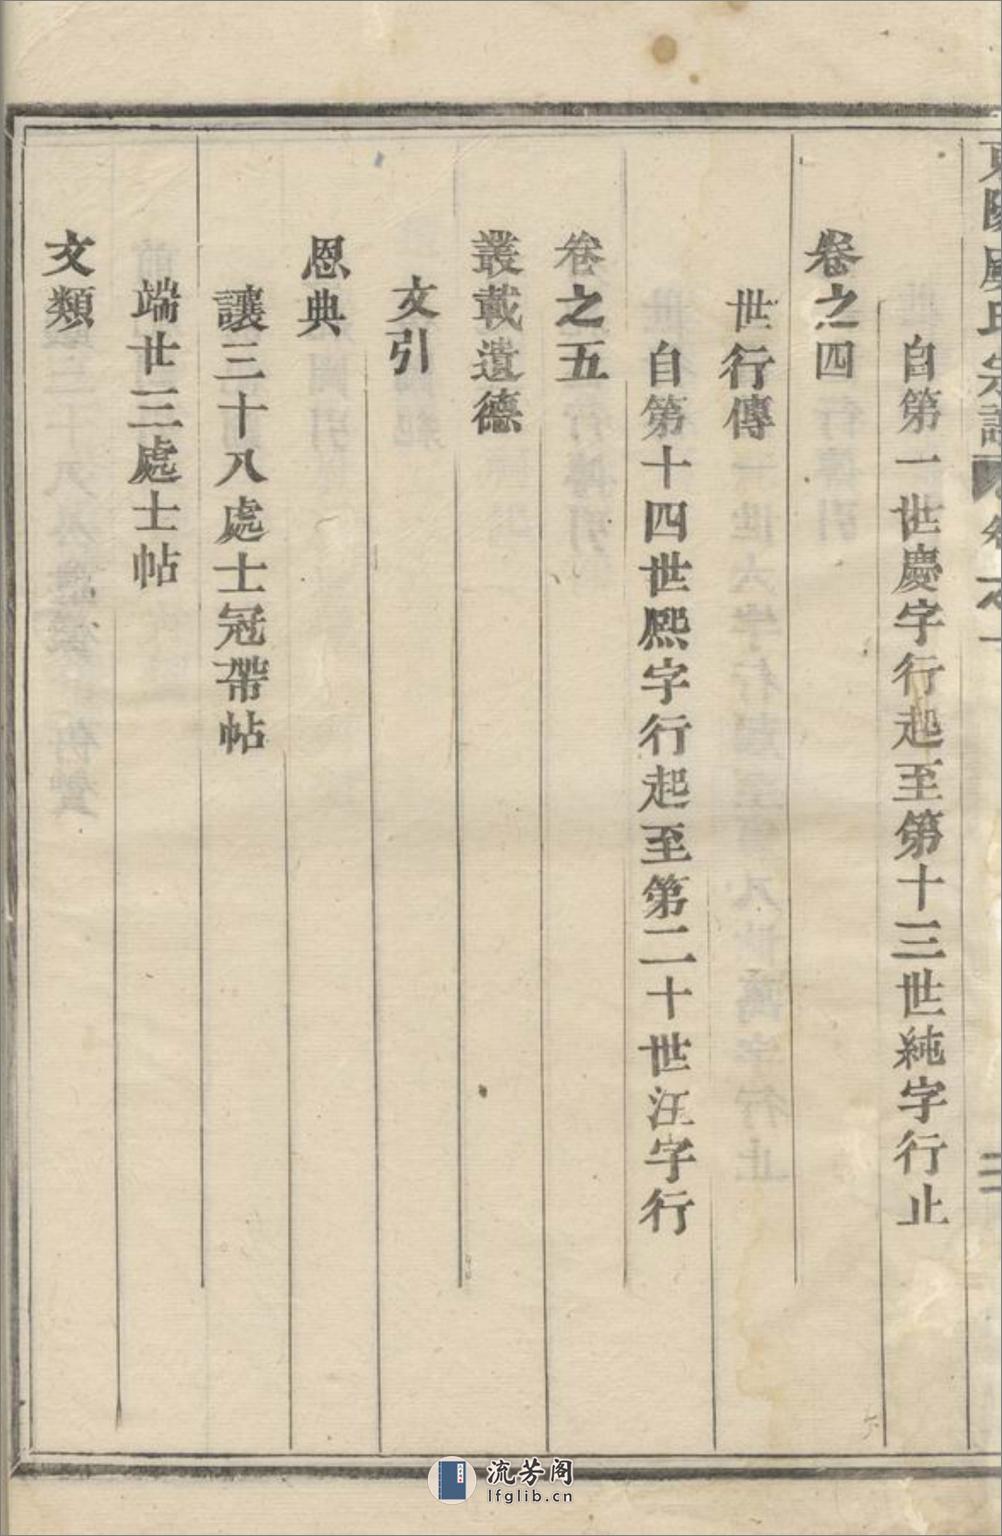 自第一世慶字行起至第十三世純字行止
卷之四
世行傳
自第十四世熈字行起至第二十世汪字行
卷之五
叢載遺德
文引
恩典
讓三十八處士冠帶帖
端廿三處士帖
文類
流芳阁
lfglib.cn